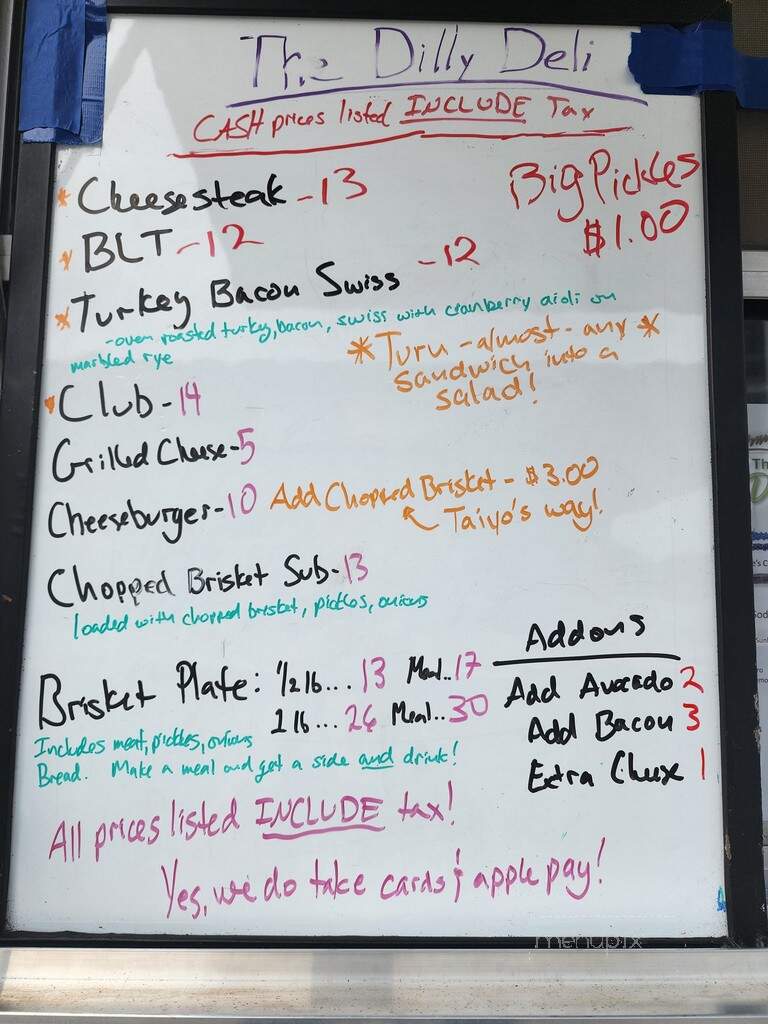 The Dilly Deli
CASH prices listed INCLUDE Tax
Big Pickles
$1.00
* Cheesesteak - 13
* BLT - 12
* Turkey Bacon Swiss - 12
- oven roasted turkey, bacon, swiss with cranberry aioli on
marbled rye
* Turn - almost - any *
sandwich into a
salad!
* Club - 14
Grilled Cheese - 5
Cheeseburger - 10
Add Chopped Brisket - $3.00
Taiyo's way!
Chopped Brisket Sub - 13
loaded with chopped brisket, pickles, onions
Brisket Plate: 1/2 lb... 13 Meal.. 17
1 lb... 26 Meal.. 30
Includes meat, pickles, onions
Bread. Make a meal and get a side and drink!
Addons
Add Avocado 2
Add Bacon 3
Extra Cheex 1
All prices listed INCLUDE tax!
Yes, we do take cards & apple pay!
menupix